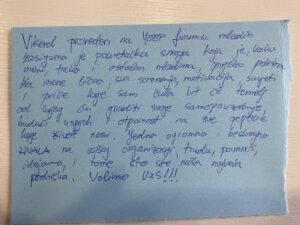 Vikend proveden na YEEP forumu mladih
zasigurno je pokretačka snaga koja je, kako
meni, tako i ostalim mladima, prijeko potrebna.
Za mene osva sva saznanja, motivacija, savjeti
i priče koje sam čula bit će temelj
od kojeg ću graditi svoje samopouzdanje,
budući uspjeh i otpornost na sve
koje život nosi. Jedno ogromno i beskrajno
HVALA na vašoj organizaciji, trudu, pomoći,
idejama, i tome što ste naša najveća
podrška. Volimo vas!!!